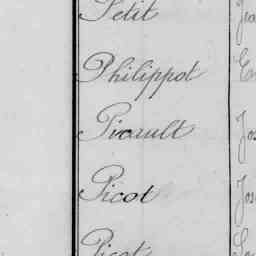 Petit
Philippot E
Picault Jos
Picot Jos
Picot